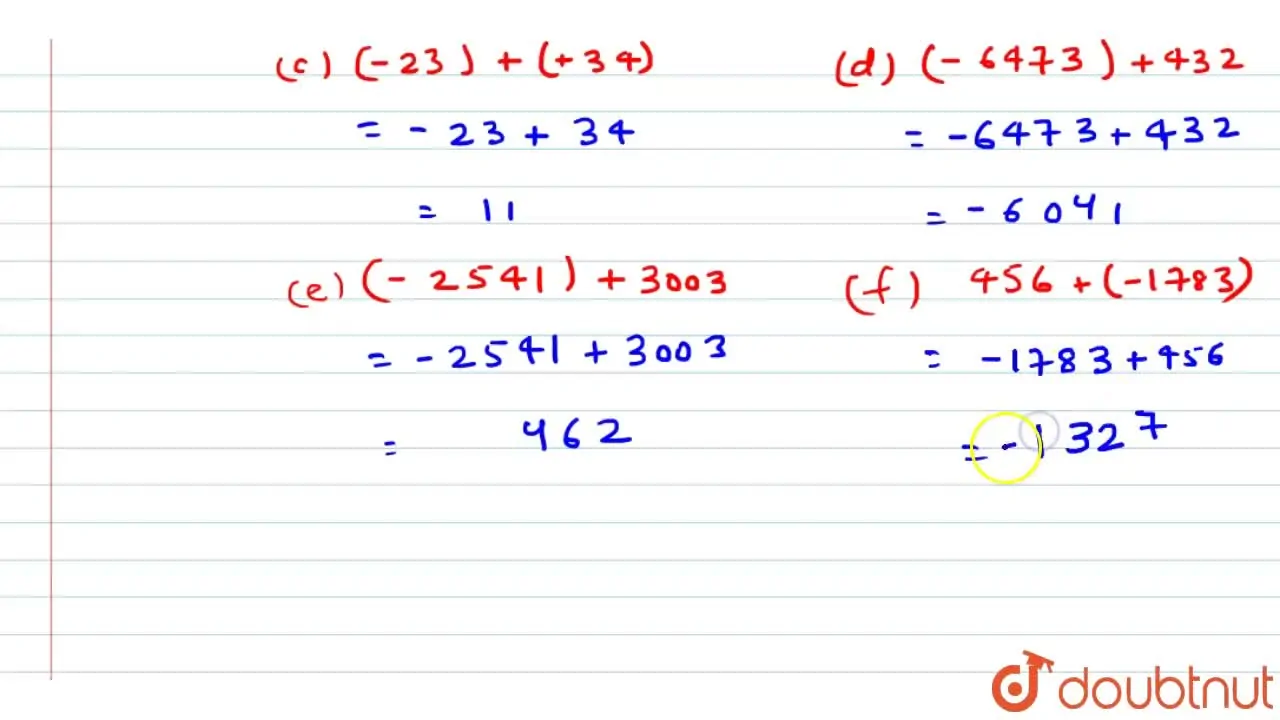 (c) (-23) + (+34)
= -23 + 34
= 11
(d) (-6473) + 432
= -6473 + 432
= -6041
(e) (-2541) + 3003
= -2541 + 3003
= 462
(f) 456 + (-1783)
= -1783 + 456
= -1327
doubtnut